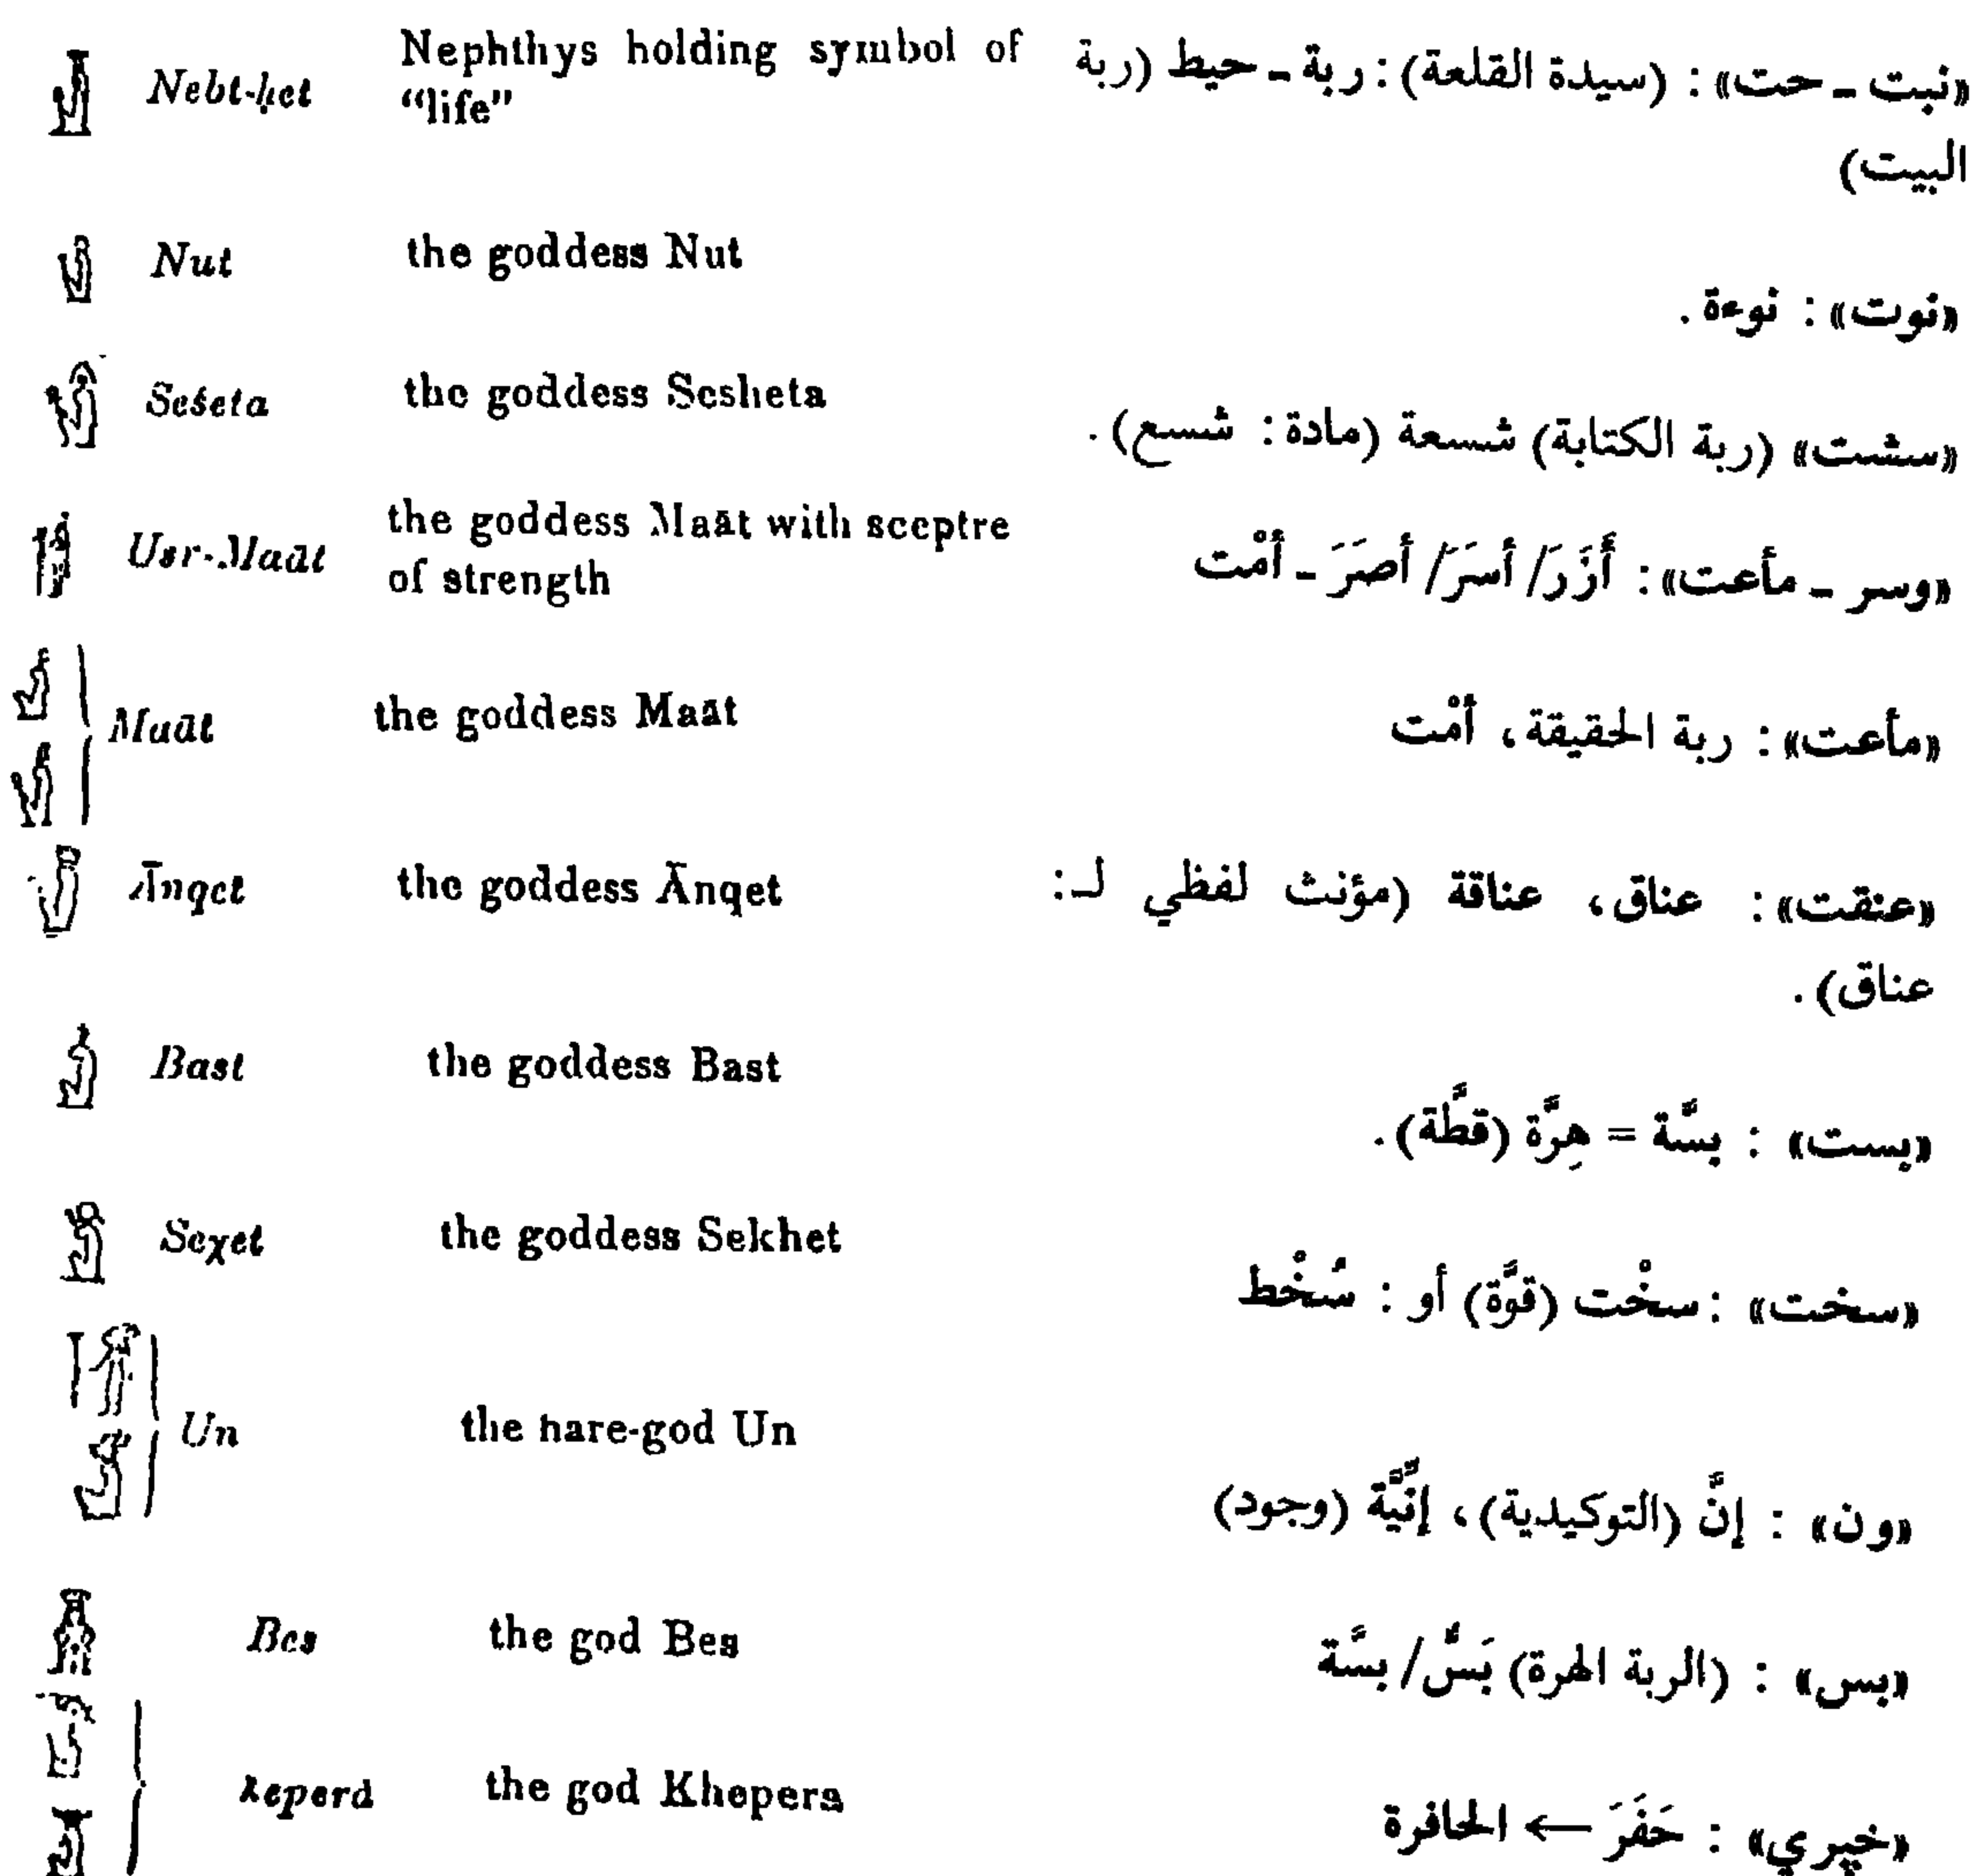 Nebt-ḥet Nephthys holding symbol of «نبت ـ حت» : (سيدة القلعة) : ربة ـ حيط (ربة
“life”
البيت)
Nut the goddess Nut
«نوت» : نوءة .
Seśeta the goddess Sesheta
«سشت» (ربة الكتابة) شسعة (مادة : شسع) .
Usr-Maāt the goddess Maāt with sceptre
of strength
«وسر ـ مأعت» : أَزَرَ/ أسَرَ/ أصَرَ ـ أمْت
Maāt the goddess Maāt
«مأعت» : ربة الحقيقة، أمْت
Ānqet the goddess Ānqet «عنقت» : عناق، عناقة (مؤنث لفظي لـ :
عناق) .
Bast the goddess Bast
«بست» : بسَّة = هِرَّة (قطَّة) .
Seχet the goddess Sekhet
«سخت» : سخْت (قوَّة) أو : سُخْط
Un the hare-god Un
«ون» : إنَّ (التوكيدية)، إنِّيَّة (وجود)
Bes the god Bes
«بس» : (الربة الهرة) بَسٌّ/ بسَّة
the god Khepera
«خپري» : حَفَرَ ← الحافرة